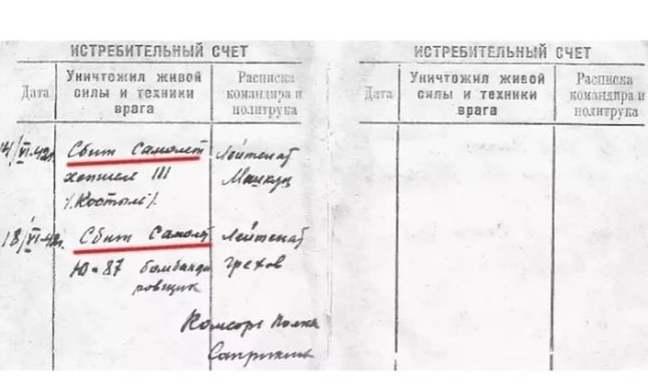 ИСТРЕБИТЕЛЬНЫЙ СЧЕТ
Дата
Уничтожил живой
силы и техники
врага
Расписка
командира и
политрука
14/VI-42г.
Сбит Самолет
III
/"Костыль"/.
Лейтенант
18/VI-42г.
Сбит Самолет
Ю-87 бомбарди
ровщик
Лейтенант
Грехов
Комсорг Полка
ИСТРЕБИТЕЛЬНЫЙ СЧЕТ
Дата
Уничтожил живой
силы и техники
врага
Расписка
командира и
политрука